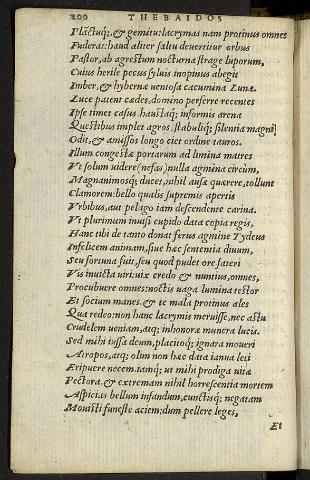 200 THEBAIDOS
Plāctuq;, & gemitu: lacrymas nam protinus omnes
Fuderat: haud aliter saltu deuertitur orbus
Pastor, ab agrestum nocturna strage luporum,
Cuius herile pecus syluis inopinus abegit
Imber, & hybernæ uentosa cacumina Lunæ.
Luce patent cædes, domino perferre recentes
Ipse timet casus. haustaq; informis arena
Questibus implet agros, stabuliq; silentia magni
Odit, & amissos longo ciet ordine tauros.
Illum congestæ portarum ad limina matres
Vt solum uidere (nefas) nulla agmina circum,
Magnanimosq; duces, nihil ausæ quærere, tollunt
Clamorem: bello qualis supremis apertis
Vrbibus, aut pelago iam descendente carina.
Vt plurimum inuisi cupido data copia regis,
Hanc tibi de tanto donat ferus agmine Tydeus
Infelicem animam, siue hæc sententia diuum,
Seu fortuna fuit, seu quod pudet ore fateri
Vis inuicta uiri: uix credo & nuntius, omnes,
Procubuere omnes: noctis uaga lumina testor
Et socium manes, & te mala protinus ales
Qua redeo: non hanc lacrymis meruisse, nec astu
Crudelem ueniam, atq; inhonoræ munera lucis.
Sed mihi iussa deum, placitoq; ignara moueri
Atropos, atq; olim non hæc data ianua leti
Eripuere necem. iamq; ut mihi prodiga uitæ
Pectora, & extremam nihil horrescentia mortem
Aspicias: bellum infandum, cunctisq; negatam
Mouisti funeste aciem: dum pellere leges,
Et